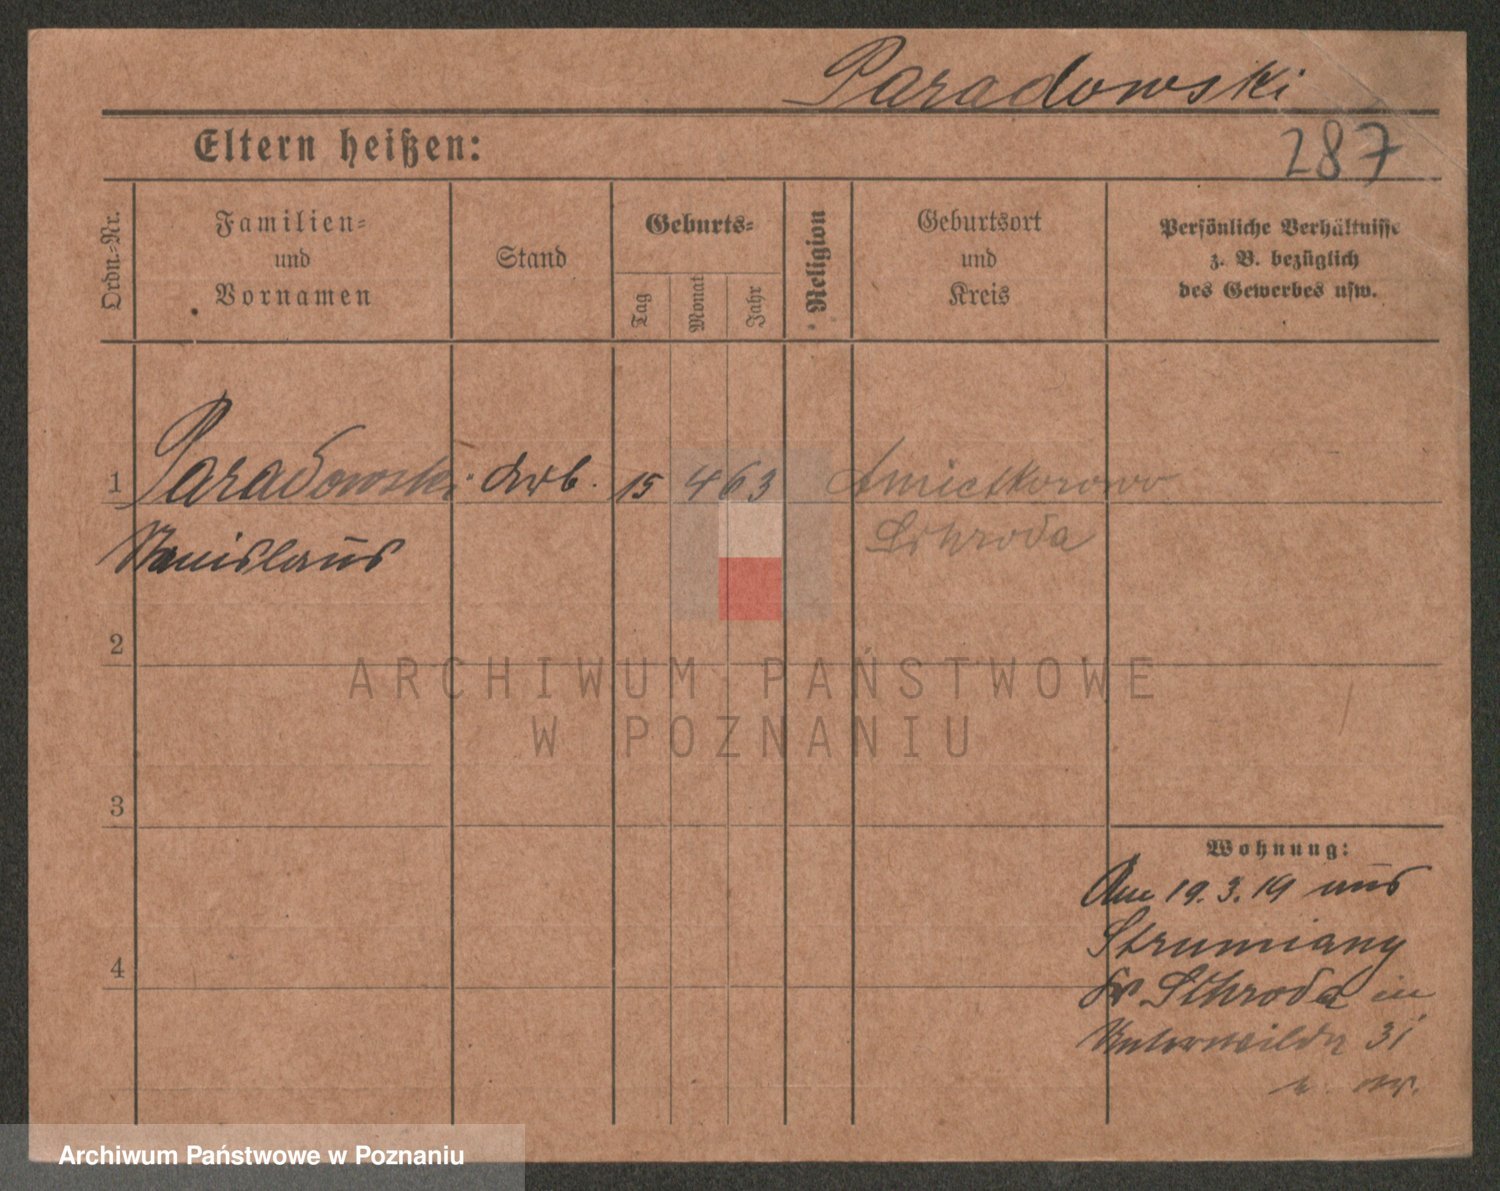 Paradowski
Eltern heißen:
287
Ordn.-Nr.
Familien-
und
Vornamen
Stand
Geburts-
Tag
Monat
Jahr
Religion
Geburtsort
und
Kreis
Persönliche Verhältnisse
z. B. bezüglich
des Gewerbes usw.
1 Paradowski Arb. 15 4 63
Schroda
Stanislaus
2
ARCHIWUM PAŃSTWOWE
W POZNANIU
3
Wohnung:
Am 19.3.19 aus
Strumiany
Kr. Schroda in
Unterwilda 31
4
Archiwum Państwowe w Poznaniu